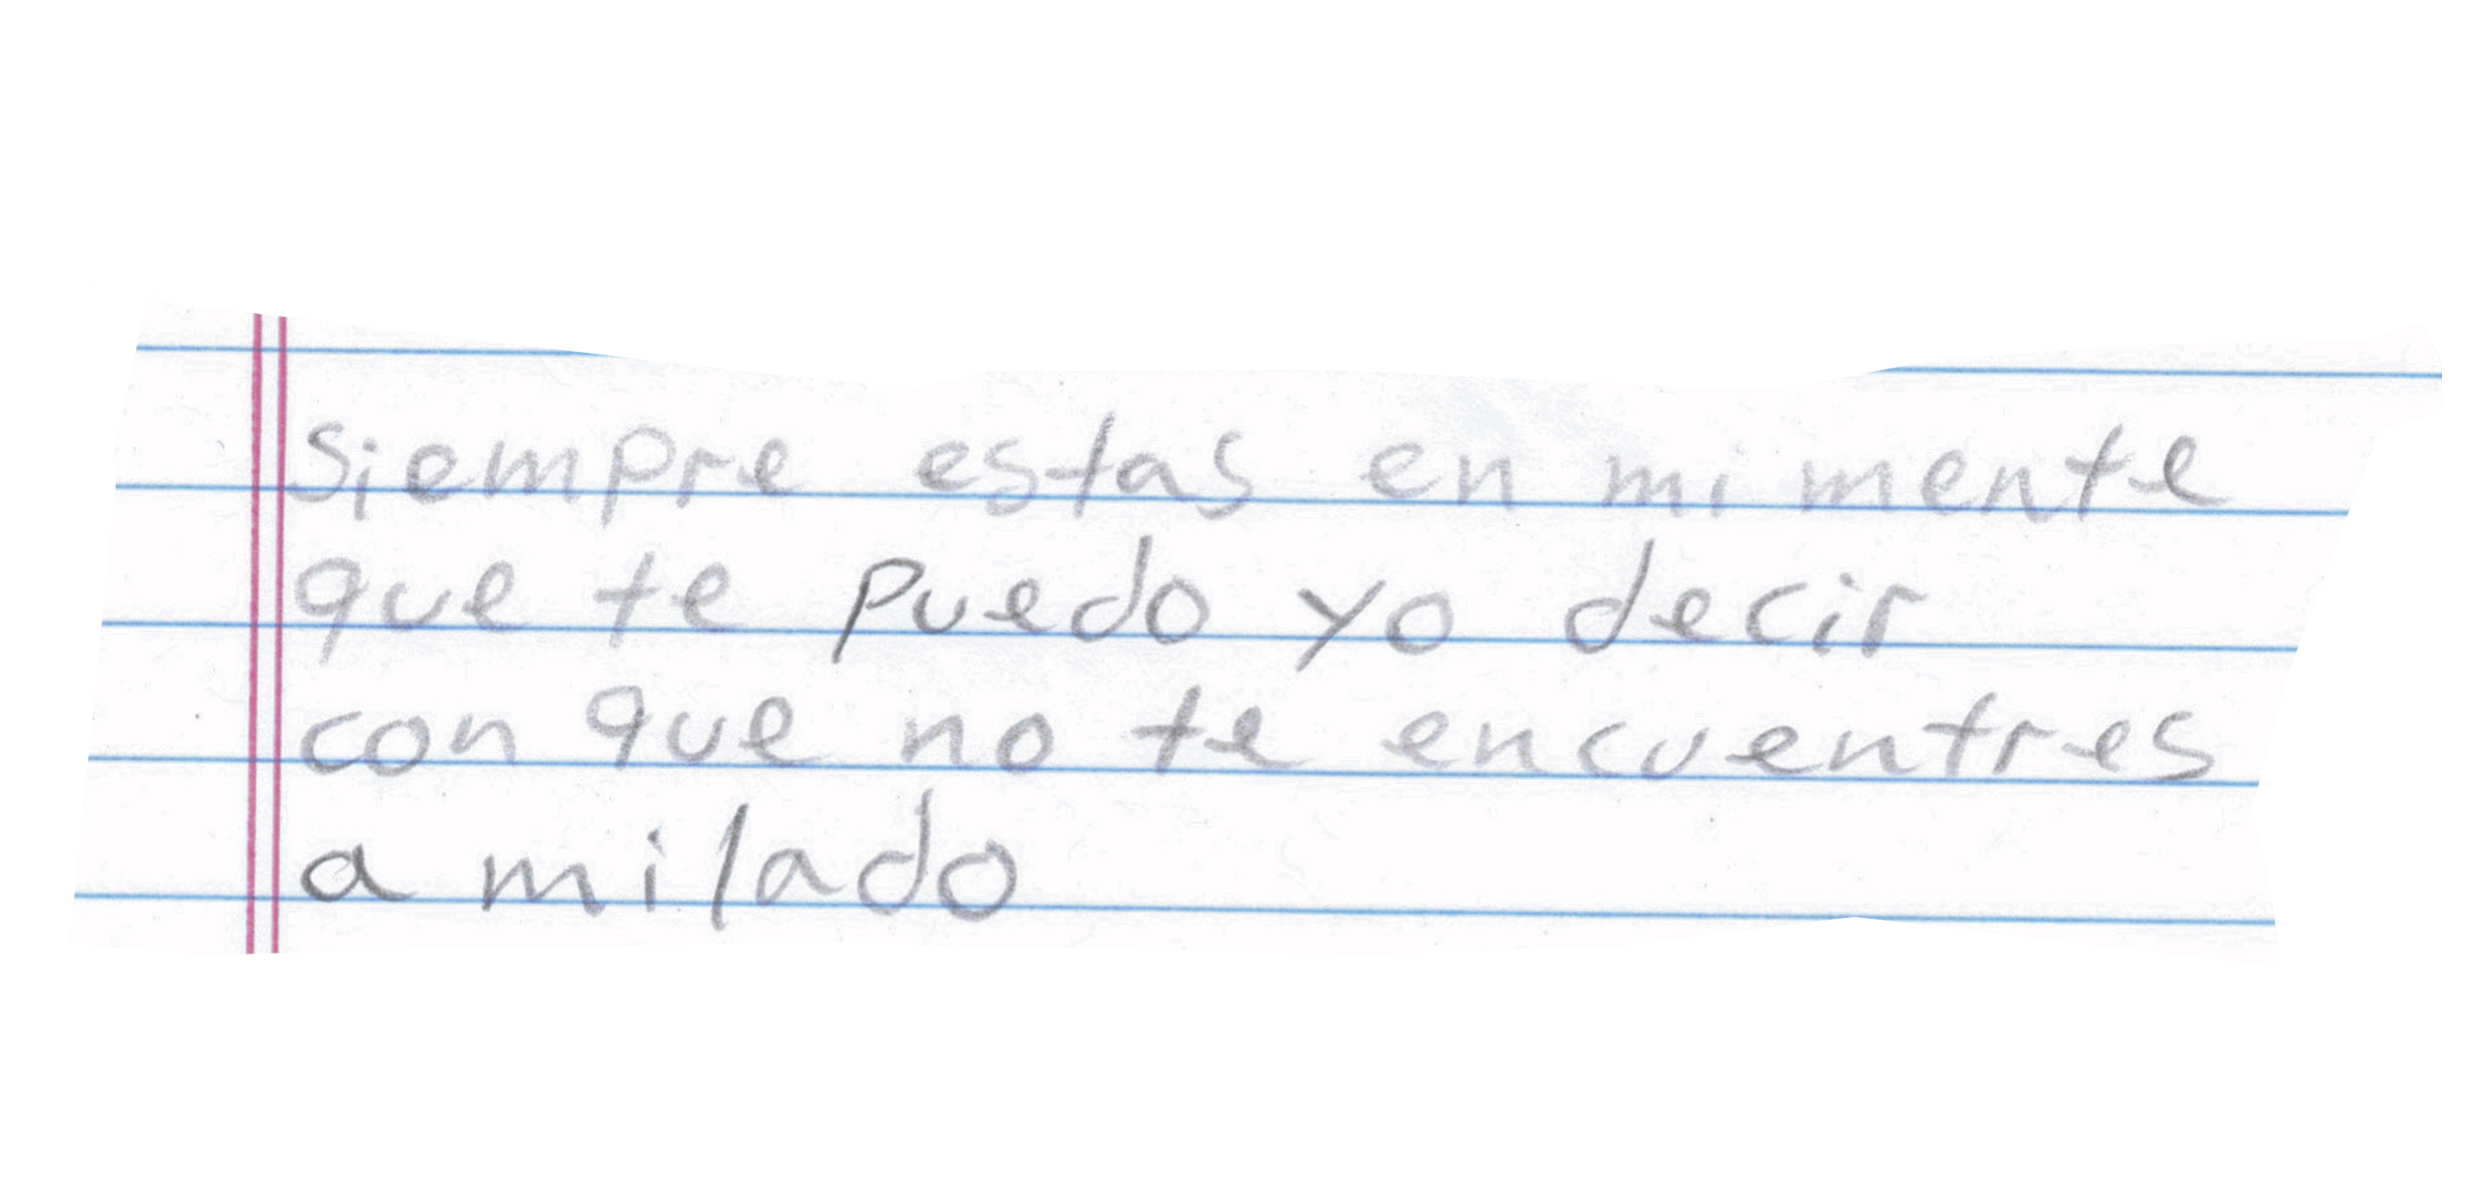 siempre estas en mi mente
que te puedo yo decir
con que no te encuentres
a mi lado